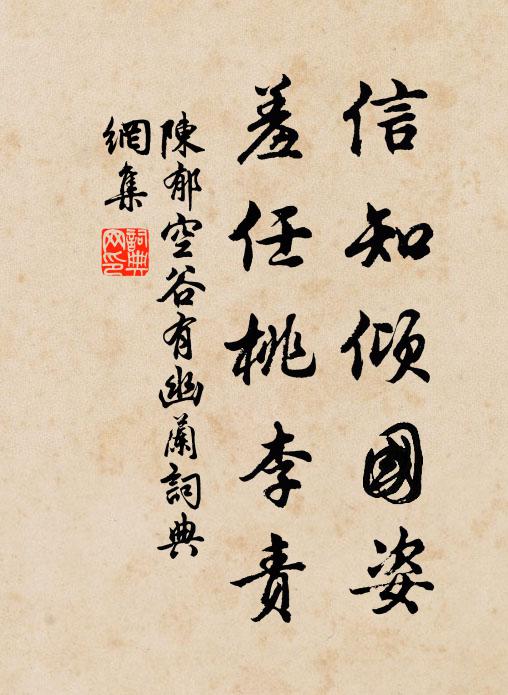 信知傾國姿
羞任桃李責
陳郁空谷有幽蘭詞典
網集
詞典
网印